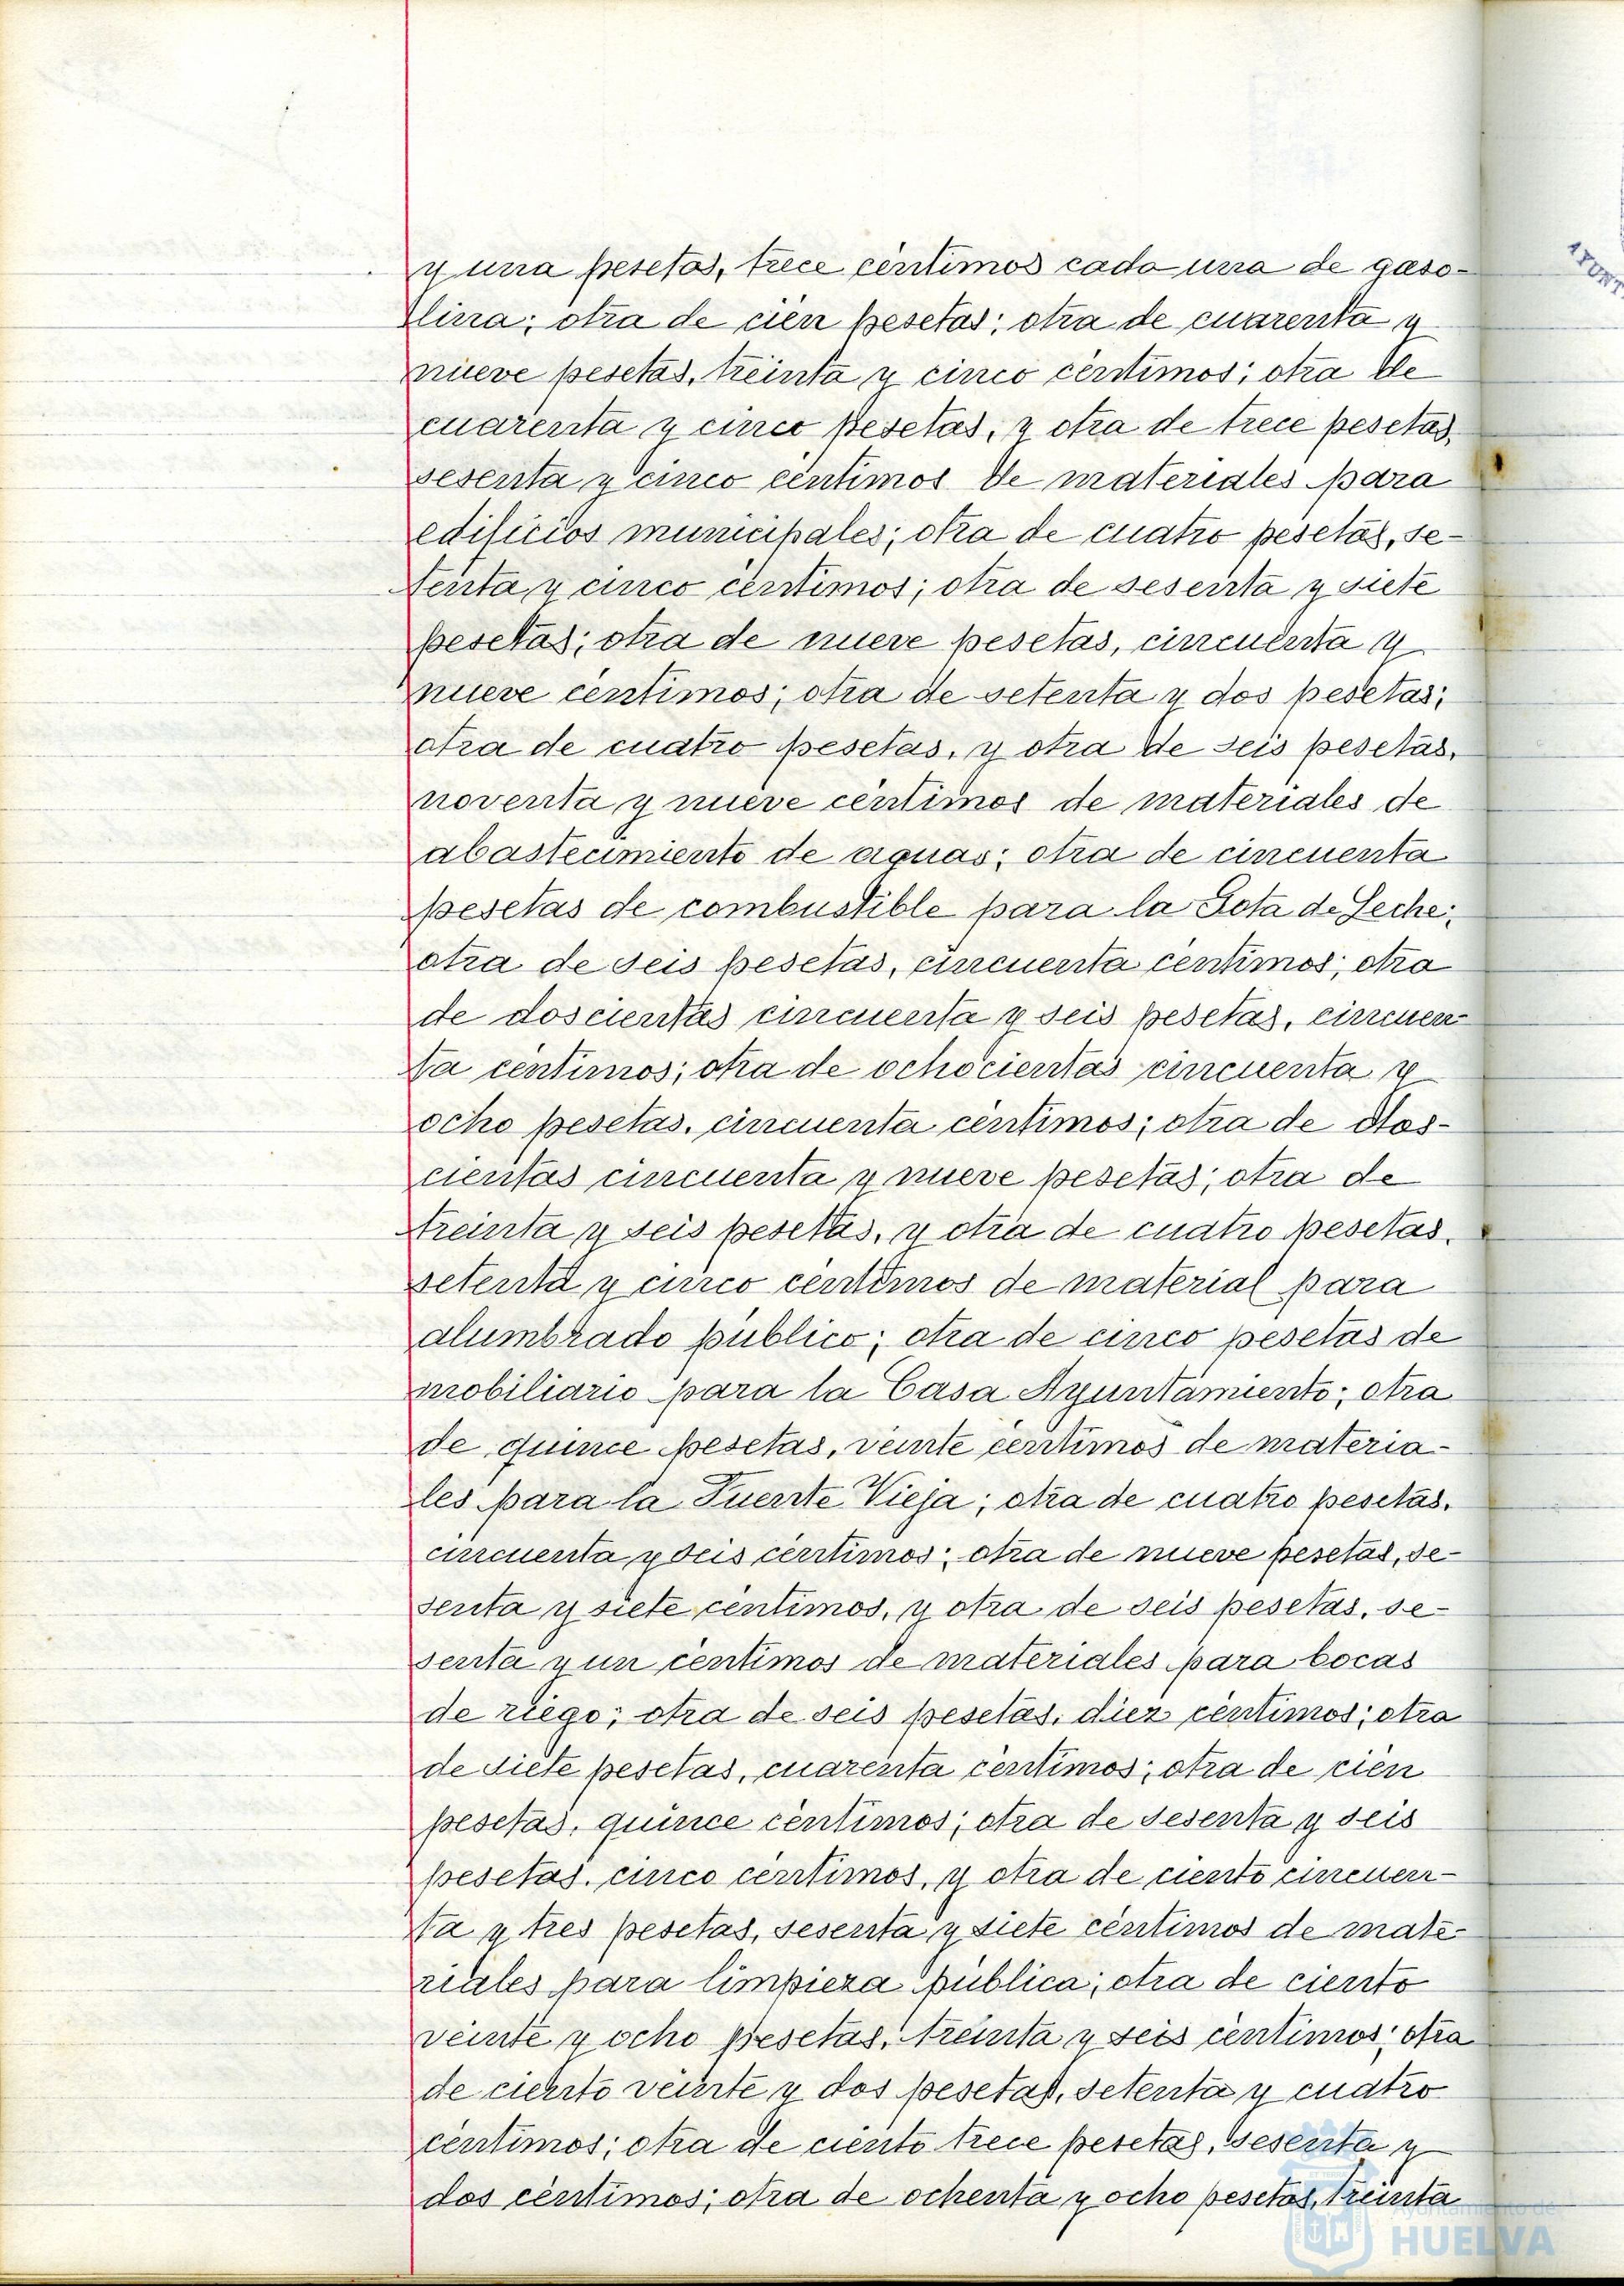 y una pesetas, trece céntimos cada una de gaso-
lina; otra de cien pesetas; otra de cuarenta y
nueve pesetas, treinta y cinco céntimos; otra de
cuarenta y cinco pesetas, y otra de trece pesetas,
sesenta y cinco céntimos de materiales para
edificios municipales; otra de cuatro pesetas, se-
tenta y cinco céntimos; otra de sesenta y siete
pesetas; otra de nueve pesetas, cincuenta y
nueve céntimos; otra de setenta y dos pesetas;
otra de cuatro pesetas, y otra de seis pesetas,
noventa y nueve céntimos de materiales de
abastecimiento de aguas; otra de cincuenta
pesetas de combustible para la Gota de Leche;
otra de seis pesetas, cincuenta céntimos; otra
de doscientas cincuenta y seis pesetas, cincuen
ta céntimos; otra de ochocientas cincuenta y
ocho pesetas, cincuenta céntimos; otra de dos-
cientas cincuenta y nueve pesetas; otra de
treinta y seis pesetas, y otra de cuatro pesetas,
setenta y cinco céntimos de material para
alumbrado público; otra de cinco pesetas de
mobiliario para la Casa Ayuntamiento; otra
de quince pesetas, veinte céntimos de materia-
les para la Fuente Vieja; otra de cuatro pesetas,
cincuenta y seis céntimos; otra de nueve pesetas, se-
senta y siete céntimos, y otra de seis pesetas, se-
senta y un céntimos de materiales para bocas
de riego; otra de seis pesetas, diez céntimos; otra
de siete pesetas, cuarenta céntimos; otra de cien
pesetas, quince céntimos; otra de sesenta y seis
pesetas, cinco céntimos, y otra de ciento cincuen-
ta y tres pesetas, sesenta y siete céntimos de mate-
riales para limpieza pública; otra de ciento
veinte y ocho pesetas, treinta y seis céntimos; otra
de ciento veinte y dos pesetas, setenta y cuatro
céntimos; otra de ciento trece pesetas, sesenta y
dos céntimos; otra de ochenta y ocho pesetas, treinta
Ayuntamiento de
HUELVA